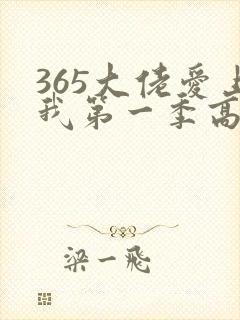 365大佬爱上
我第一季高
梁一飛